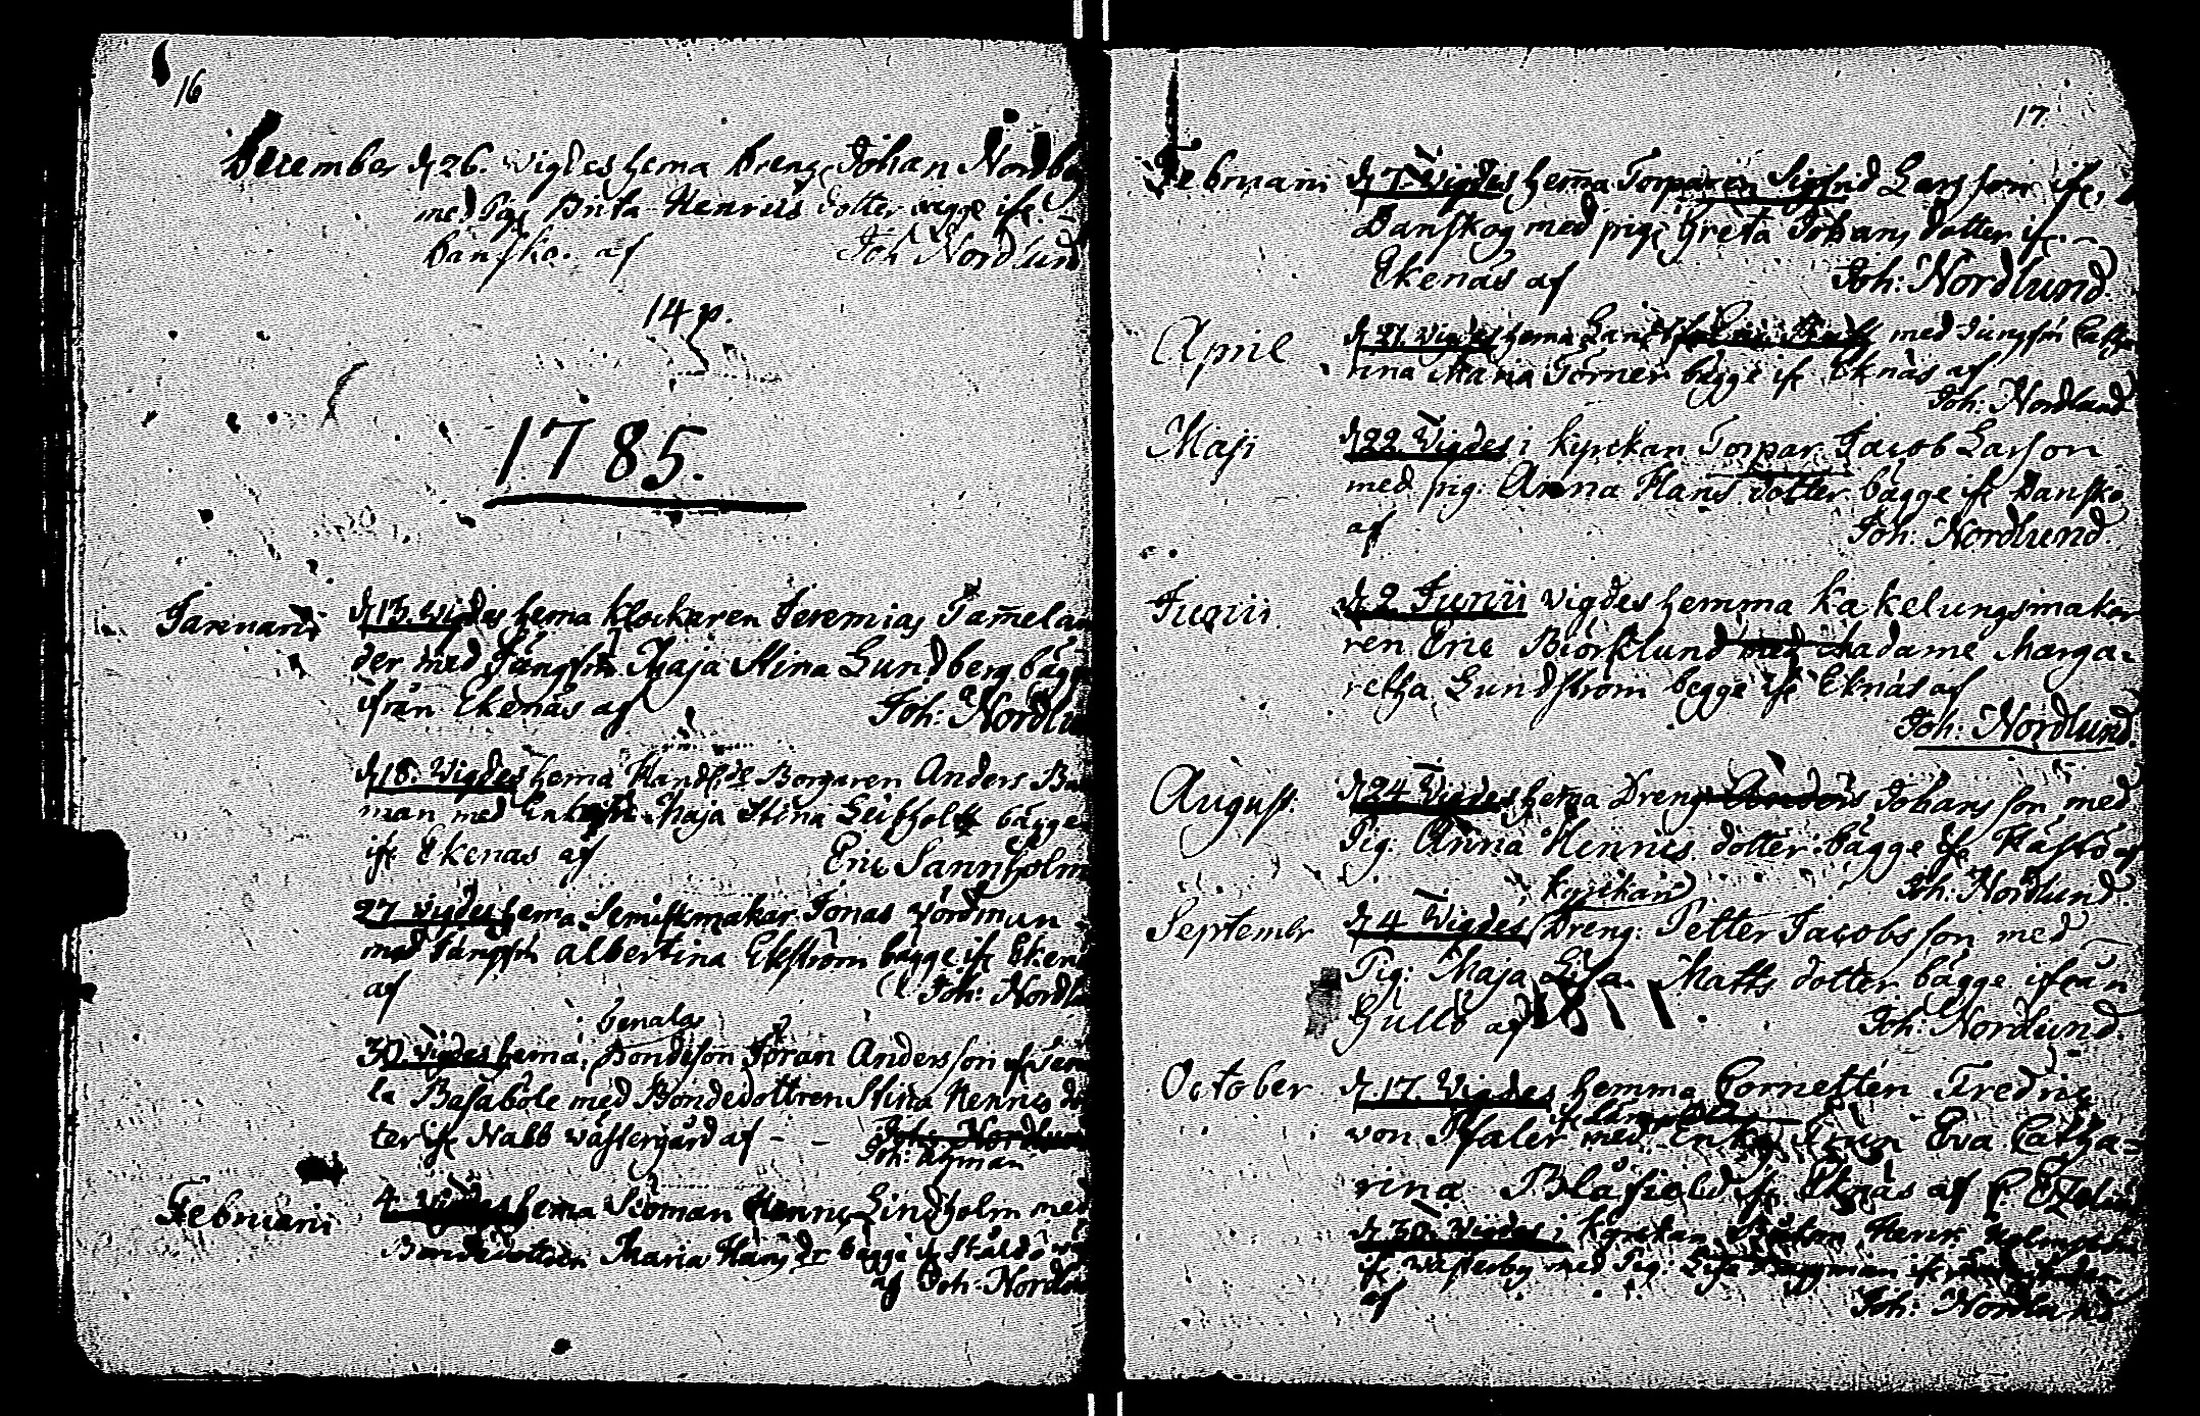 16
December d 26. vigdes hema Dreng Johan
med Pig Brita Henrics dotter bägge ifr.
Dansko. af Joh Nordlund
14 p.
1785.
Januarii d 13. vigdes hema Klockaren Jeremias Tamelan
der med Jungfr. Maja Stina Lundberg bägge
ifrån Ekenäs af Joh: Nordlu
d 18. Vigdes hema Borgaren Anders
man med Maja Stina bägge
ifr Ekenas af Eric Sannholm
27 vigdes hema Jonas
med Jungfr albertina Ekström bägge ifr Eken
af Joh: Nordlu
benalas
30 vigdes hema Bondeson Jöran Andersson
la Basaböle med Bondedottren Stina Henrics dot
ter ifr Nabb wästergård af - - Joh: Nordlun
Joh: Ahman
Februarii 4 vigdes hema Henric Lindholm med
Bondedottren Maria Hans dr bägge ifr
af Joh. Nordlu
17.
Februarii d 7. Vigdes hema Torparen Sigfrid Larsson ifr.
Danskog med pig. Greta Johans dotter ifr.
Ekenäs af Joh: Nordlund.
April d 21. vigdes hema med Jungfr Catha
rina Maria Törner bägge ifr Eknäs af
Joh: Nordlund
Maji d 22. Vigdes i kyrckan Torpar. Jacob Larson
med pig. Anna Hans dotter bägge ifr Dansko
af Joh: Nordlund.
Junii d 2 Junii vigdes hemma kakelungsmaka
ren Eric Biörklund med Madame Marga-
retha Lundström begge ifr Eknäs af
Joh: Nordlund.
August: d 24 Vigdes hema Dreng Anders Johans son med
Pig: Anna Henrics dotter bägge ifr af
Joh: Nordlund.
kyrckan
September d 4 Vigdes Dreng: Petter Jacobs son med
Pig: Maja Lisa Matts dotter bägge ifrån
Gullö af Joh: Nordlund.
October d 17. Vigdes hemma Cornetten Fredric
von Pfaler med Enke Frun Eva Catha-
rina Blåfield ifr Eknäs af
d 30. Vigdes i kyrckan Henr.
ifr Wästerby med Pig: Lisa
af Joh: Nordlund